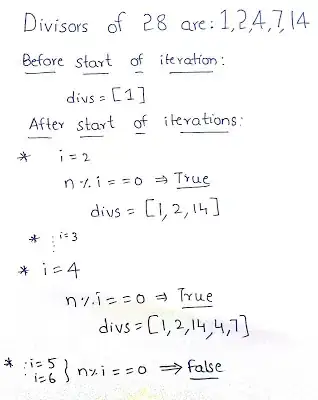 Divisors of 28 are: 1,2,4,7,14
Before start of iteration:
divs = [1]
After start of iterations:
* i = 2
n % i == 0 ⇒ True
divs = [1, 2, 14]
* : i=3
* i = 4
n % i == 0 ⇒ True
divs = [1, 2, 14, 4, 7]
* : i = 5
: i = 6 } n % i == 0 ⇒ False